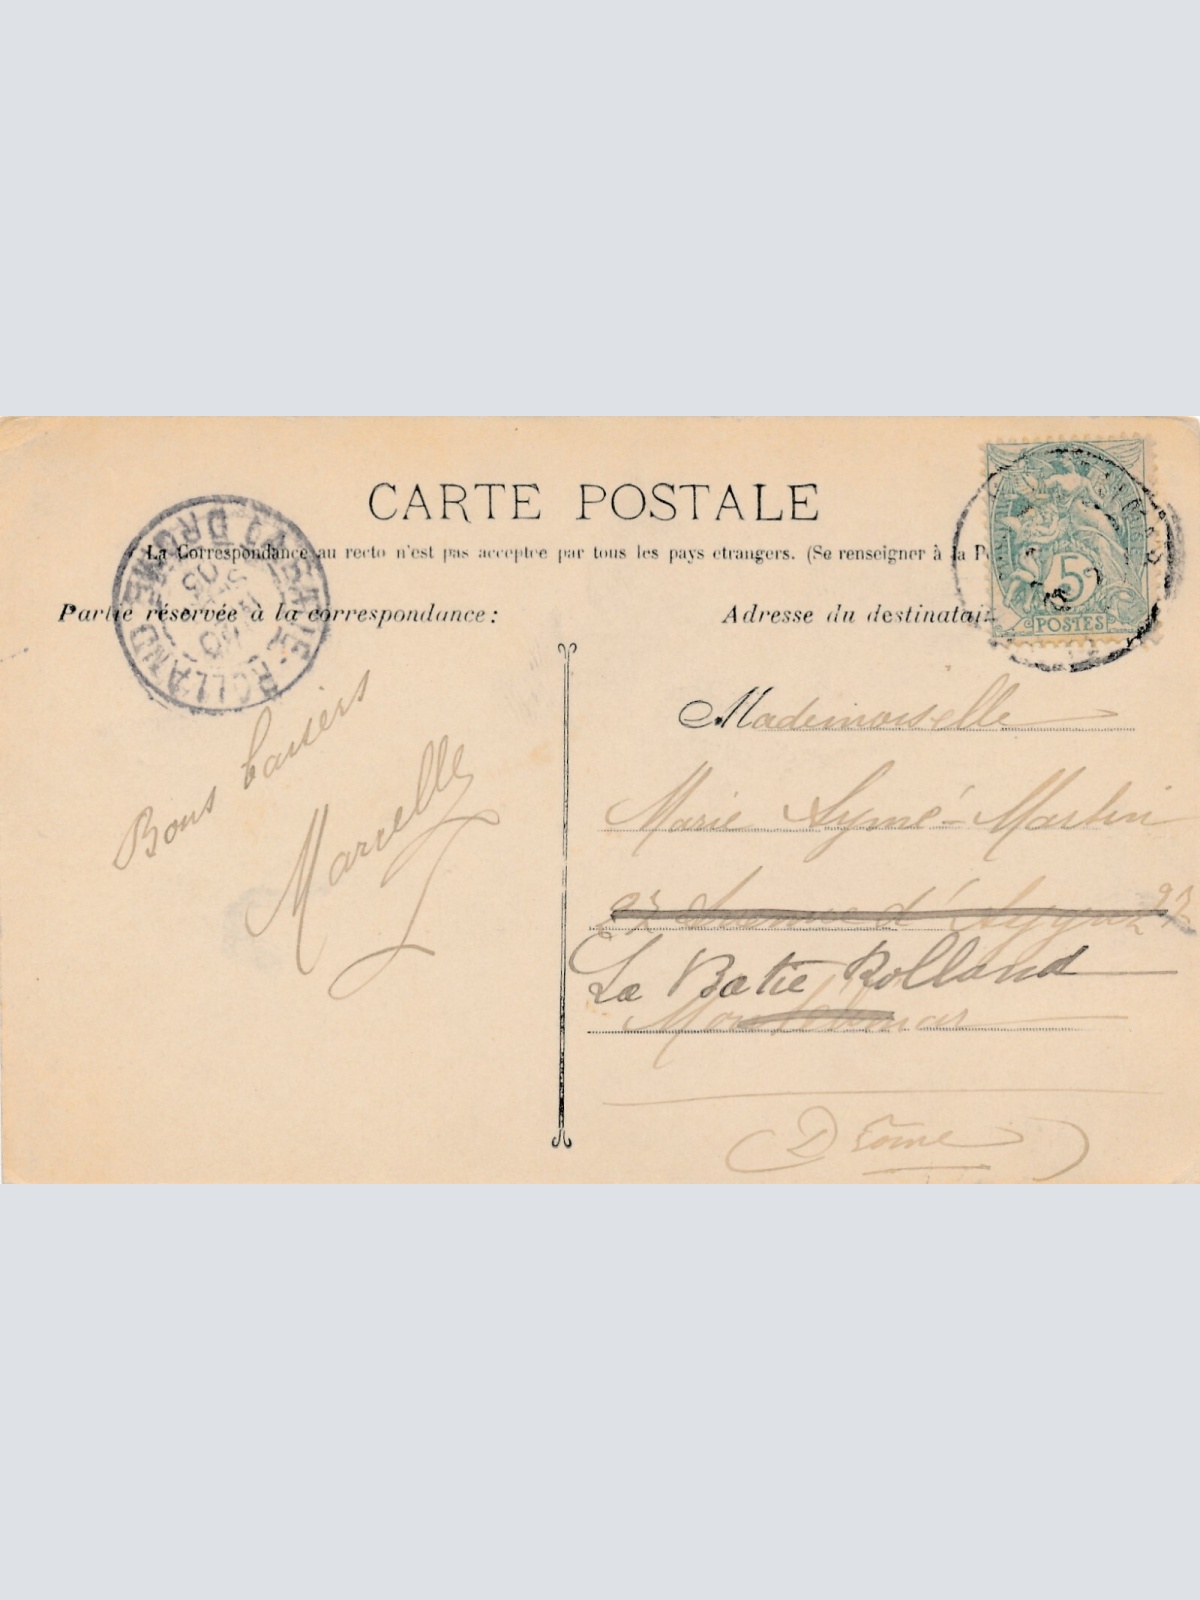 CARTE POSTALE
La Correspondance au recto n'est pas acceptée par tous les pays étrangers. (Se renseigner à la P
Partie réservée à la correspondance:
Adresse du destinatai
LA BATIE-ROLLAND DROME
05
5
POSTES
Bons baisers
Marcelle
Mademoiselle
Marie Aymé-Martin
Avenue d'
La Batie Rolland
Montelimar
(Drôme)